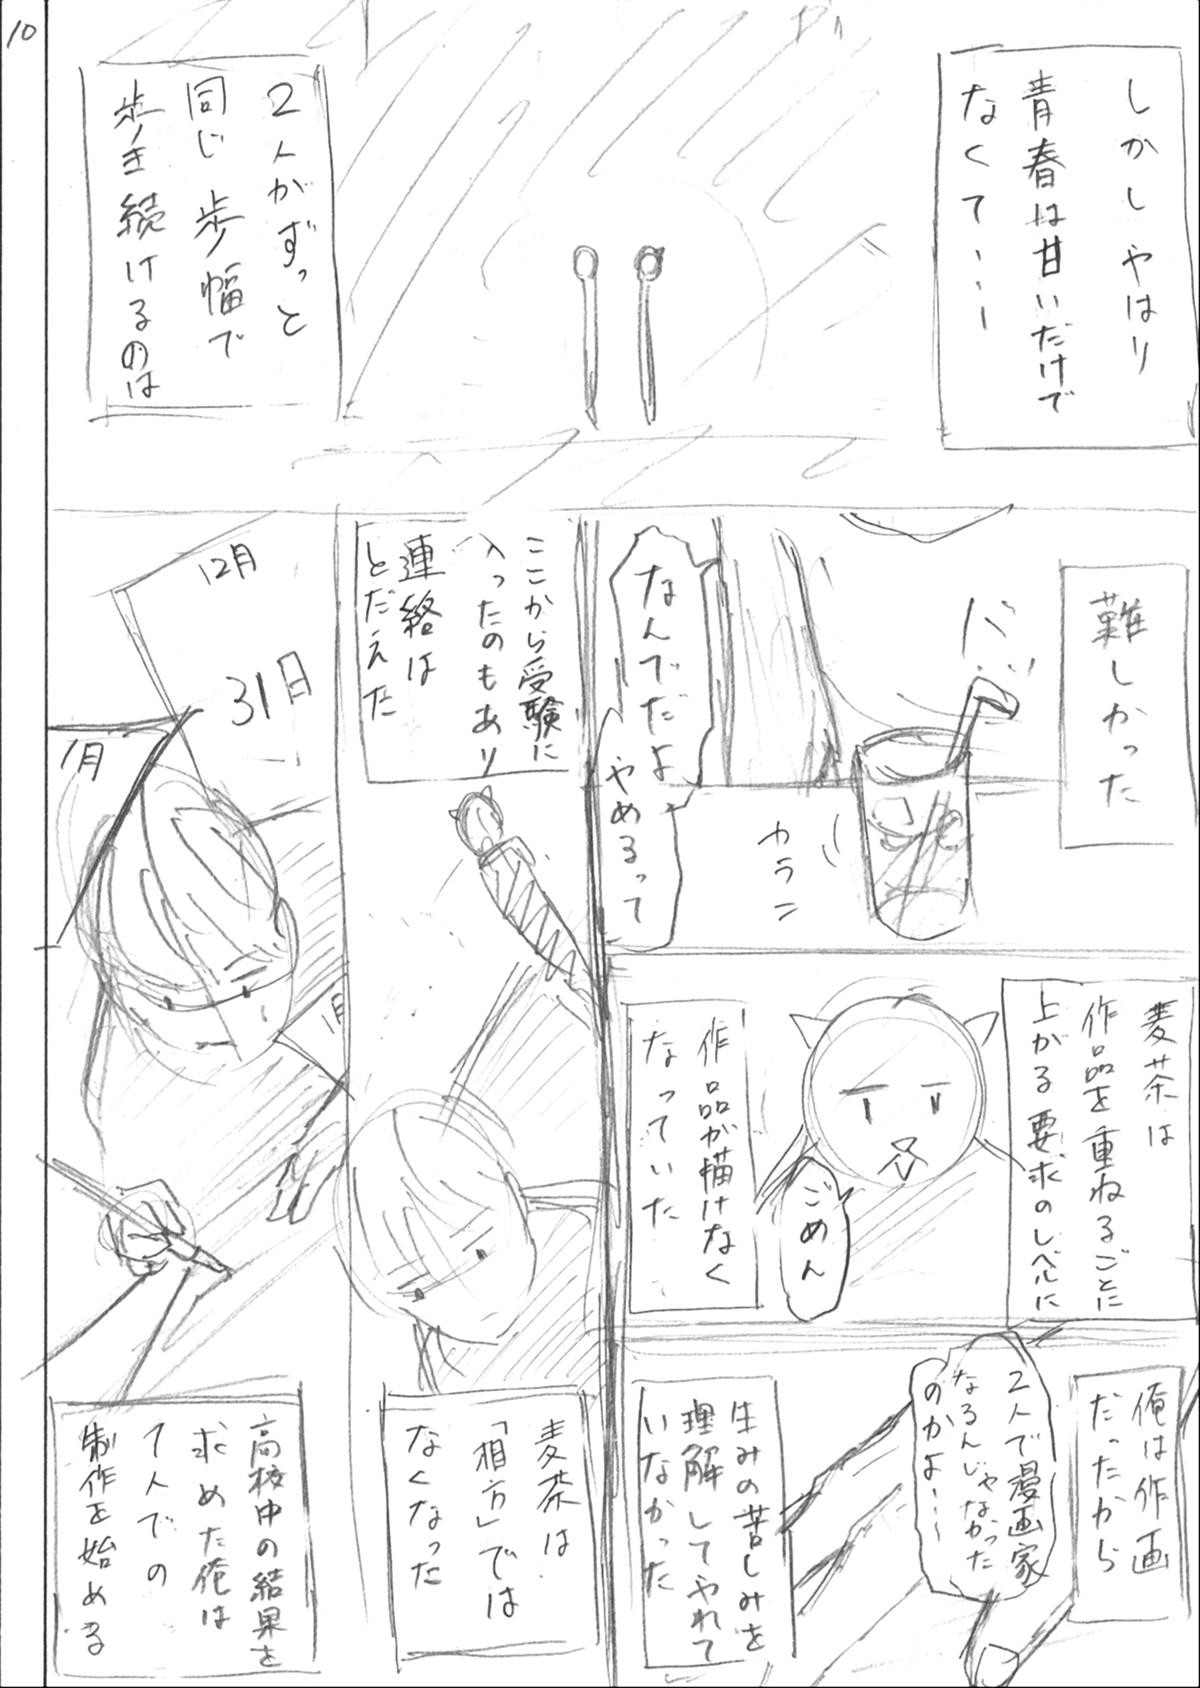 10
しかしやはり
青春は甘いだけで
なくて・・・ー
2人がずっと
同じ歩幅で
歩き続けるのは
難しかった
カラン
なんでだよ
やめるって
麦茶は
作品を重ねるごとに
上がる要求のレベルに
ごめん
作品が描けなく
なっていた
俺は作画
だったから
2人で漫画家
なるんじゃなかった
のかよ・・ー
生みの苦しみを
理解してやれて
いなかった
ここから受験に
入ったのもあり
連絡は
とだえた
麦茶は
「相方」では
なくなった
12月
31日
1月
1月
高校中の結果を
求めた俺は
1人での
制作を始める